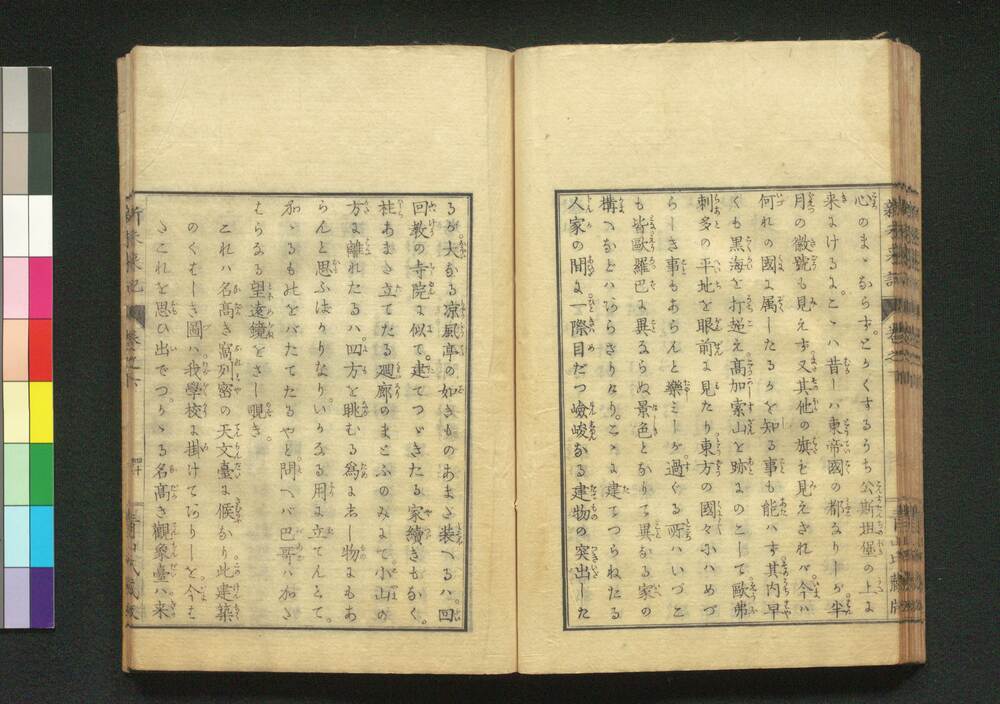 心のまゝならす。とかくするうち公斯坦堡の上に
来にけるに。こゝハ昔しハ東帝國の都なりしが半
月の徽號も見えす又其他の旗も見えされバ今ハ
何れの國に属したるかを知る事も能ハす其内早
くも黒海を打越え。高加索山を跡にのこして歐弗
刺多の平址を眼前に見たり東方の國々にハめづ
らしき事もあらんと樂ミしが過くる所ハいづこ
も皆歐羅巴に異ならぬ景色とかりて異なる家の
構へなどハあらざりけり。こゝに建てつらねたる
人家の間に一際目だつ嶮峻なる建物の突出した
るが大なる凉風亭の如きものあまた装へるハ。回
回教の寺院に似て。建てつゞきたる家續きもなく。
柱あまた立てたる廻廊のまとふのみにて小山の
方に離れたるハ四方を眺むる爲にせし物にもあ
らんと思ふはかりなり。いかなる用に立てんとて。
かゝるものをバたてたるやと問へバ巴哥ハかた
はらなる望遠鏡をさし覗き。
これハ名高き窩列密の天文臺に候なり此建築
のくはしき圖ハ。我學校に掛けてありしを。今も
たこれを思ひ出でつ。かゝる名高き觀象臺ハ。来
新未来記 卷之下 四十 青山氏藏版